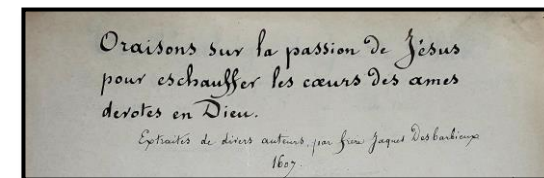 Oraisons sur la passion de Jésus
pour eschauffer les cœurs des ames
devotes en Dieu.
Extraites de divers auteurs, par frere Jaques Desbarbieux
1607.